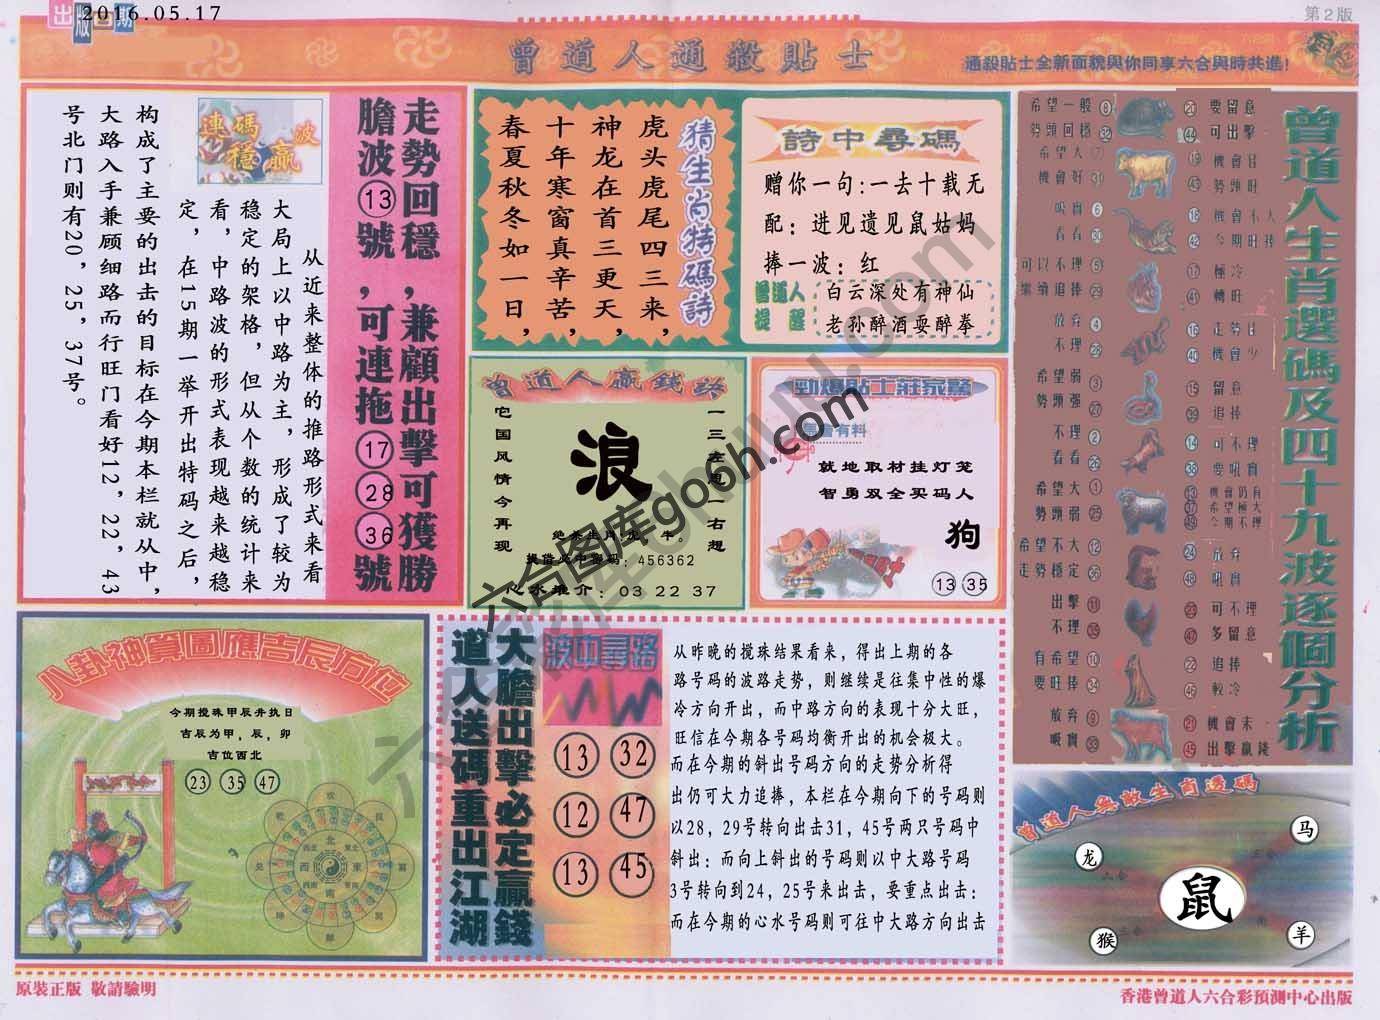 出版日期
2016.05.17
第2版
曾道人通殺貼士
通殺貼士全新面貌與你同享六合與時共進!
走勢回穩,兼顧出擊可獲勝
膽波⑬號,可連拖⑰㉘㊱號
連碼穩贏波
从近来整体的推路形式来看
大局上以中路为主,形成了较为
稳定的架格,但从个数的统计来
看,中路波的形式表现越来越稳
定,在15期一举开出特码之后,
构成了主要的出击的目标在今期本栏就从中,
大路入手兼顾细路而行旺门看好12,22,43
号北门则有20,25,37号。
猜生肖特碼詩
虎头虎尾四三来,
神龙在首三更天,
十年寒窗真辛苦,
春夏秋冬如一日,
詩中尋碼
赠你一句:一去十载无
配:进见遗见鼠姑妈
捧一波:红
曾道人提醒
白云深处有神仙
老孙醉酒耍醉拳
曾道人贏錢詩
一三左思一右想
浪
它国风情今再现
456362
03 22 37
勁爆貼士莊家驚
有料
就地取材挂灯笼
智勇双全买码人
狗
⑬ ㉟
曾道人生肖選碼及四十九波逐個分析
希望一般 ⑧
勢頭回穩 ㉜
⑳ 要留意
㊹ 可出擊
希望大 ⑦
機會好 ㉛
⑲ 機會佳
㊸ 勢頭旺
吸實 ⑥
看看 ㉚
⑱ 機會不大
㊷ 今期旺捧
可以不理 ⑤
繼續追捧 ㉙
⑰ 極冷
㊶ 轉旺
放弃 ④
不理
⑯ 走勢日
㊵ 機會少
希望弱 ③
勢頭强 ㉗
⑮ 留意
㊴ 追捧
不理 ②
看看 ㉖
⑭ 可不理
㊳ 要吼實
希望大 ①
勢頭弱 ㉕
⑬ 機會仍有
㊲ 希望極大
㊾ 今期不理
希望不大 ⑫
走勢穩定
㉔ 放弃
㊽ 吼實
出擊 ⑪
不理 ㉟
㉓ 可不理
㊼ 多留意
有希望 ⑩
要旺捧 ㉞
㉒ 追捧
㊻ 較冷
放弃 ⑨
吸實 ㉝
㉑ 機會未
㊺ 出擊贏錢
八卦神算圖應吉辰方位
今期搅珠甲辰并执日
吉辰为甲,辰,卯
吉位西北
㉓ ㉟ ㊼
大膽出擊必定贏錢
道人送碼重出江湖
波中尋路
13 32
12 47
13 45
从昨晚的搅珠结果看来,得出上期的各
路号码的波路走势,则继续是往集中性的爆
冷方向开出,而中路方向的表现十分大旺,
旺信在今期各号码均衡开出的机会极大。
而在今期的斜出号码方向的走势分析得
出仍可大力追捧,本栏在今期向下的号码则
以28,29号转向出击31,45号两只号码中
斜出:而向上斜出的号码则以中大路号码
3号转向到24,25号来出击,要重点出击:
而在今期的心水号码则可往中大路方向出击
曾道人無敵生肖透碼
马
龙
鼠
猴
羊
原裝正版 敬請驗明
香港曾道人六合彩預測中心出版
六合图库go6h.com